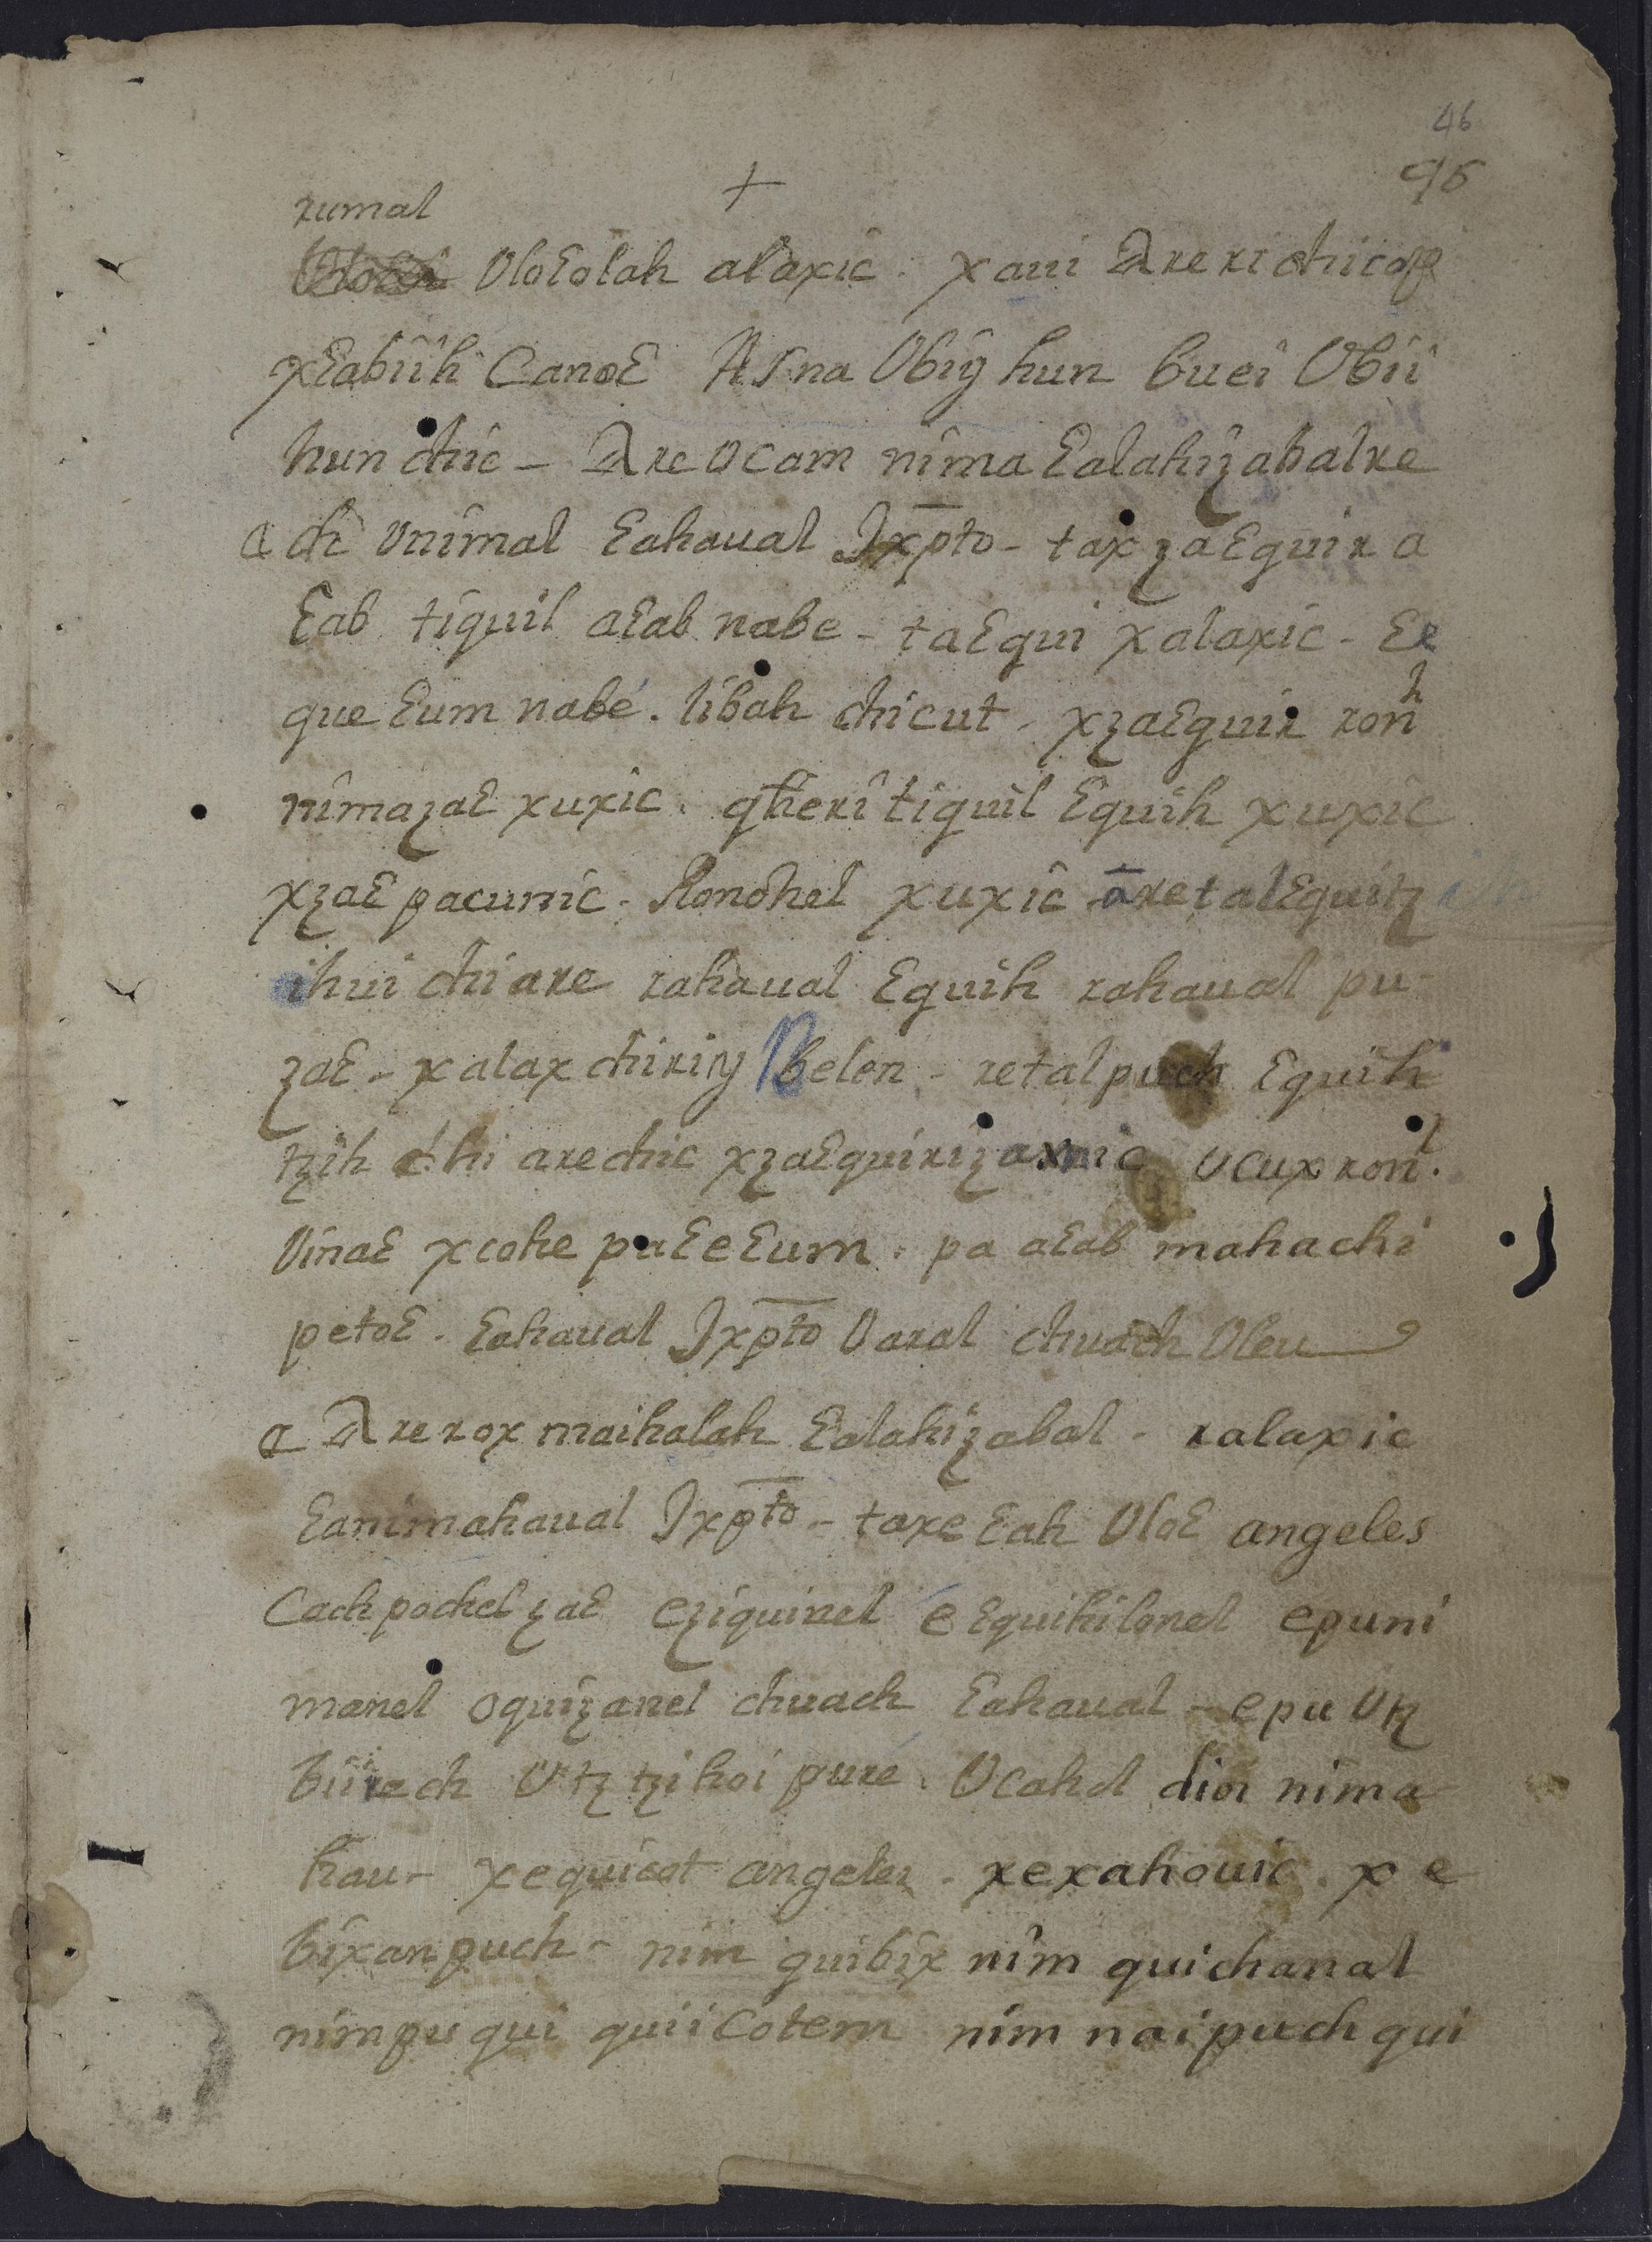 46
96
+
rumal
Vloεolah alaxic. xaui Are ri chicop
xεabiih Canoε Asna Ubiy hun buei Ubii
hun chic – Are Ucam nima εalahiȥabal re
a ch unimal εahaual Jxp̅to – tax ȥaεquir a
εab tiquil aεab nabe – taεqui xalaxic – εe
que εum nabe. libah chicut – xȥaεquir ronh
nimaȥaε xuxic. qheri tiquil εquih xuxic
xȥaε pacunic. Ronohel xuxic are talεquitȥ
ihui chi are rahaual εquih rahaual pu-
ȥaε – xalax chiriy Belen – retal puch εquih
tȥih chi are chic xȥaεquiriȥaxnic ucux ronl.
Vinaε xcohe paεeεum. pa aεab mahachi
petoε. εahaual Jxp̅to Varal chuach Uleu
a Are rox maihalah εalahiȥabal – ralaxic
εanimahaual Jxp̅to – taxe εah Uloε angeles
Cach pochel ȥaε eȥiquinel e εquihilonel epuni
manel oquiȥanel chuach εahaual – epu Utȥ
biirech Utȥ tȥihoi pure. Ucahol dios nima
hau – xequicot angeles. xexahouic. xe
bixan puch – nim quibix nim quichanal
nimpu qui quiicotem nim nai puch qui